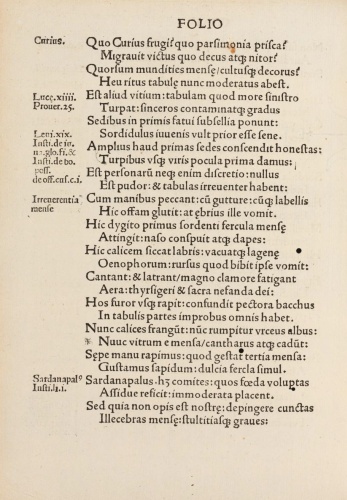 FOLIO
Curius.
Quo Curius frugi? quo parsimonia prisca?
Migrauit victus quo decus atq; nitor?
Quorsum mundities mensę/cultusq; decorus?
Heu ritus tabulę nunc moderatus abest.
Lucę.xiiii.
Est aliud vitium: tabulam quod more sinistro
Prouer.25.
Turpat: sinceros contaminatq; gradus
Sedibus in primis fatui subsellia ponunt:
Leui.xix.
Sordidulus iuuenis vult prior esse sene.
Insti.de iu.
Amplius haud primas sedes conscendit honestas:
n.glo.fi.&
Insti.de bo.
Turpibus vsq; viris pocula prima damus:
poss.
Est personarū neq; enim discretio: nullus
de off.eus.c.i.
Est pudor: & tabulas irreuenter habent:
Irreuerentia
Cum manibus peccant: cū gutture: cūq; labellis
mense
Hic offam glutit: at ebrius ille vomit.
Hic dygito primus sordenti fercula mensę
Attingit: naso conspuit atq; dapes:
Hic calicem siccat labris: vacuatq; lagenę
Oenophorum: rursus quod bibit ipse vomit:
Cantant: & latrant/magno clamore fatigant
Aera: thyrsigeri & sacra nefanda dei:
Hos furor vsq; rapit: confundit pectora bacchus
In tabulis partes improbus omnis habet.
Nunc calices frangūt: nūc rumpitur vrceus albus:
Nunc vitrum e mensa/cantharus atq; cadūt:
Sępe manu rapimus: quod gestat tertia mensa:
Gustamus sapidum: dulcia fercla simul.
Sardanapalꝰ
Sardanapalus hʒ comites: quos fœda voluptas
Insti.li.i.
Assidue reficit: immoderata placent.
Sed quia non opis est nostrę: depingere cunctas
Illecebras mensę: stultitiasq; graues: